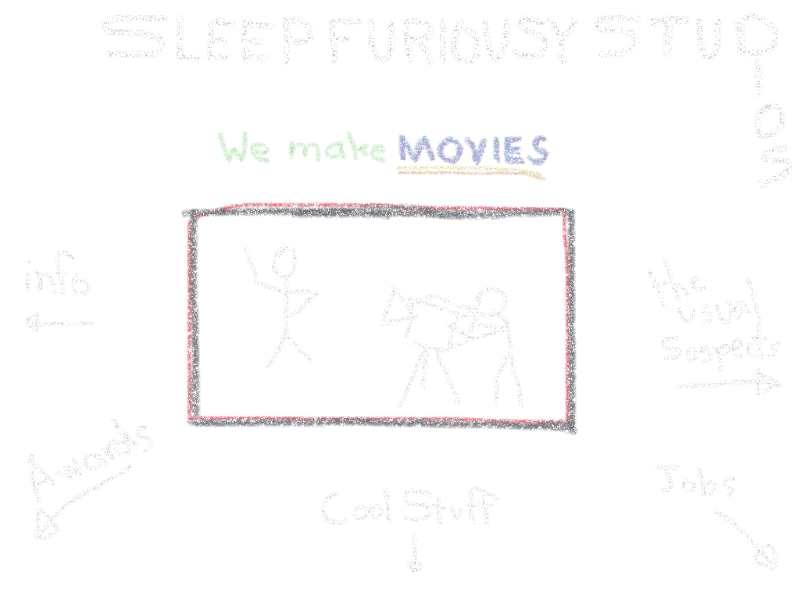 SLEEP FURIOUSY STUDIOS
We make MOVIES
info
the
usual
suspects
Awards
Jobs
Cool Stuff